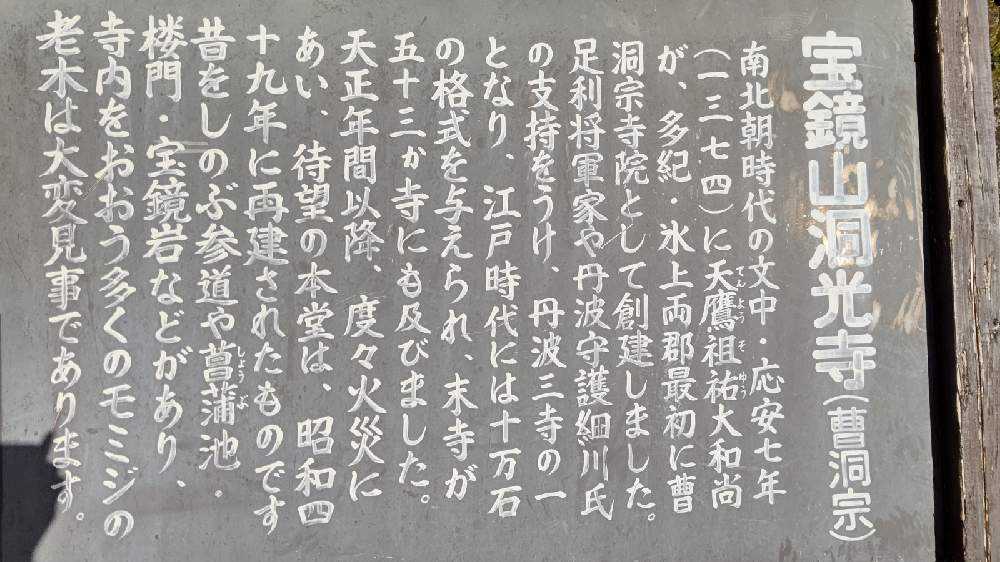 宝鏡山洞光寺(曹洞宗)
南北朝時代の文中・応安七年
(一三七四)に天鷹祖祐大和尚
てんようそゆう
が、多紀・氷上両郡最初に曹
洞宗寺院として創建しました。
足利将軍家や丹波守護細川氏
の支持をうけ、丹波三寺の一
となり、江戸時代には十万石
の格式を与えられ、末寺が
五十三カ寺にも及びました。
天正年間以降、度々火災に
あい、待望の本堂は、昭和四
十九年に再建されたものです
昔をしのぶ参道や菖蒲池・
しょうぶ
楼門・宝鏡岩などがあり、
寺内をおおう多くのモミジの
老木は大変見事であります。